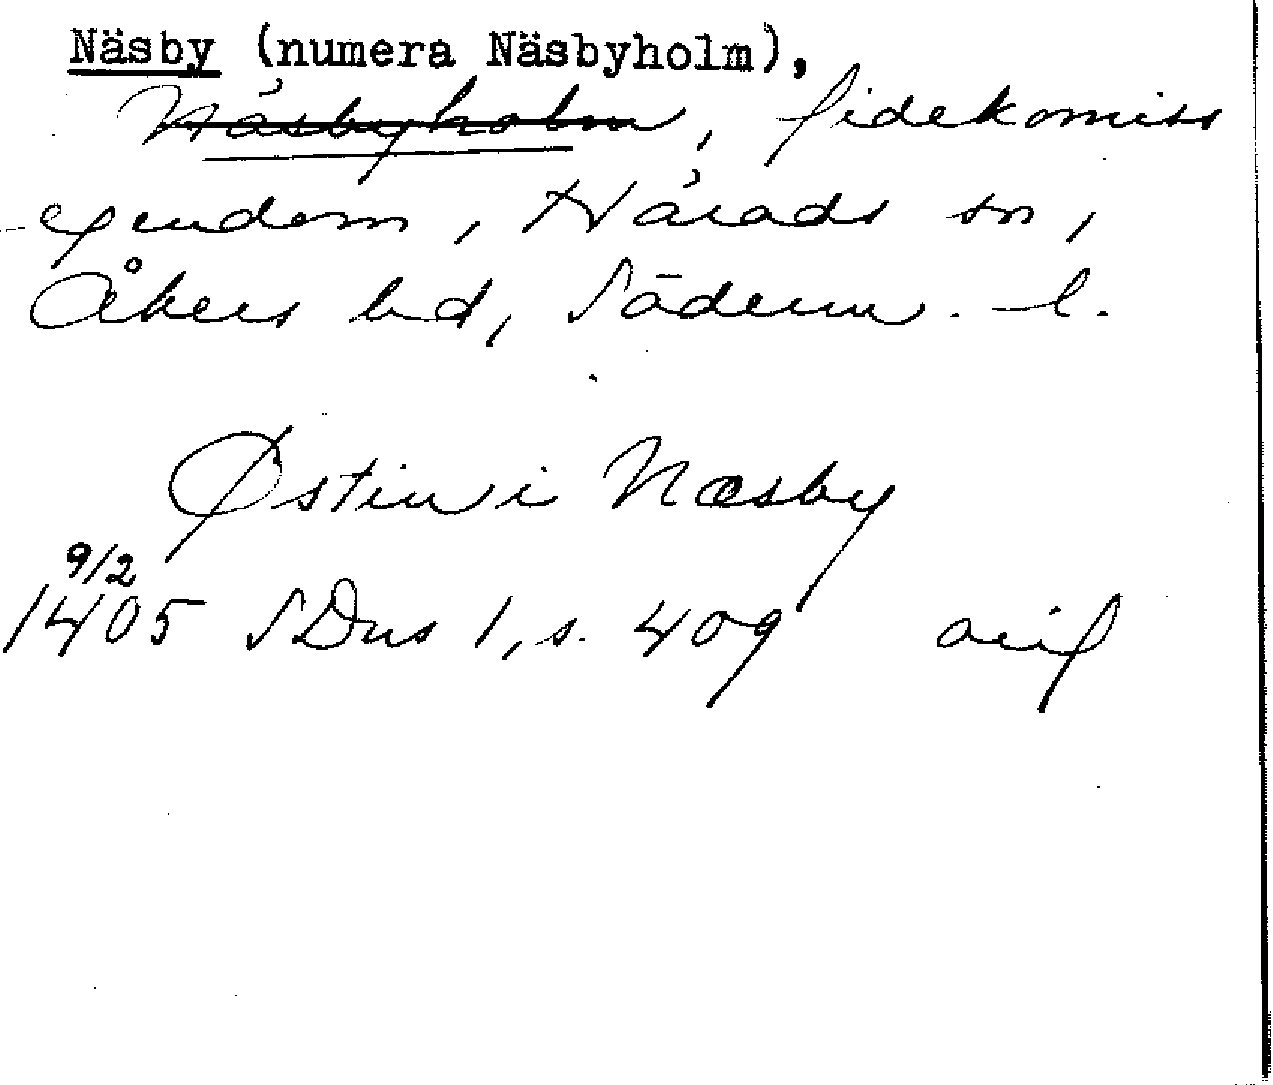 Näsby (numera Näsbyholm),
Näsbyholm, fidekomiss
egendom, Härads sn,
Åkers hd, Söderm. l.
Østin i Næsby
9/2
1405 SDns 1, s. 409 avif